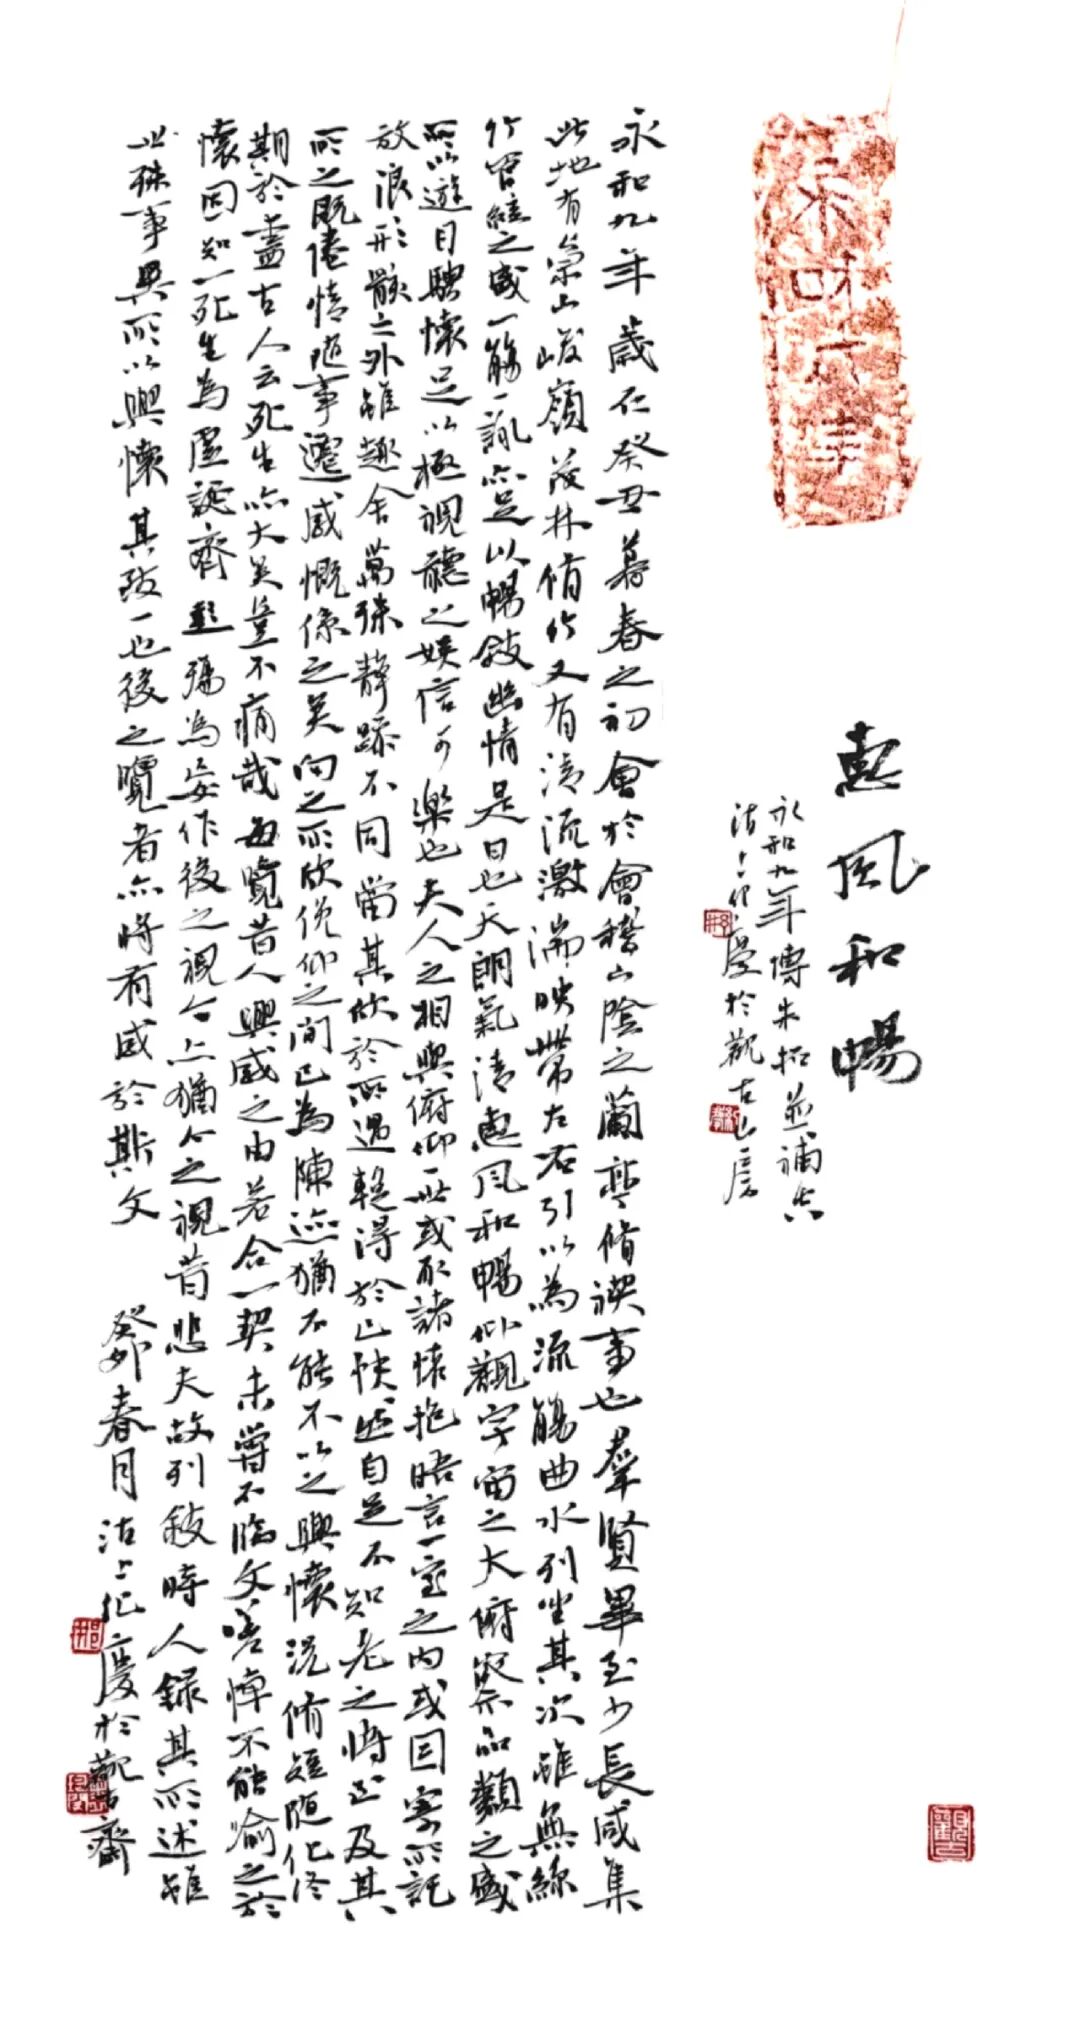 永和九年
惠風和暢
永和九年博朱拓並補空
沽上於觀古山房
永和九年歲在癸丑暮春之初會於會稽山陰之蘭亭脩禊事也羣賢畢至少長咸集
此地有崇山峻嶺茂林脩竹又有清流激湍映帶左右引以為流觴曲水列坐其次雖無絲
竹管絃之盛一觴一詠亦足以暢敍幽情是日也天朗氣清惠風和暢仰觀宇宙之大俯察品類之盛
所以遊目騁懷足以極視聽之娛信可樂也夫人之相與俯仰一世或取諸懷抱晤言一室之內或因寄所託
放浪形骸之外雖趣舍萬殊靜躁不同當其欣於所遇暫得於己怏然自足不知老之將至及其
所之既倦情隨事遷感慨係之矣向之所欣俛仰之間已為陳迹猶不能不以之興懷況脩短隨化終
期於盡古人云死生亦大矣豈不痛哉每覽昔人興感之由若合一契未嘗不臨文嗟悼不能喻之於
懷因知一死生為虛誕齊彭殤為妄作後之視今亦猶今之視昔悲夫故列敍時人錄其所述雖
世殊事異所以興懷其致一也後之覽者亦將有感於斯文
癸卯春月沽上慶於觀古齋